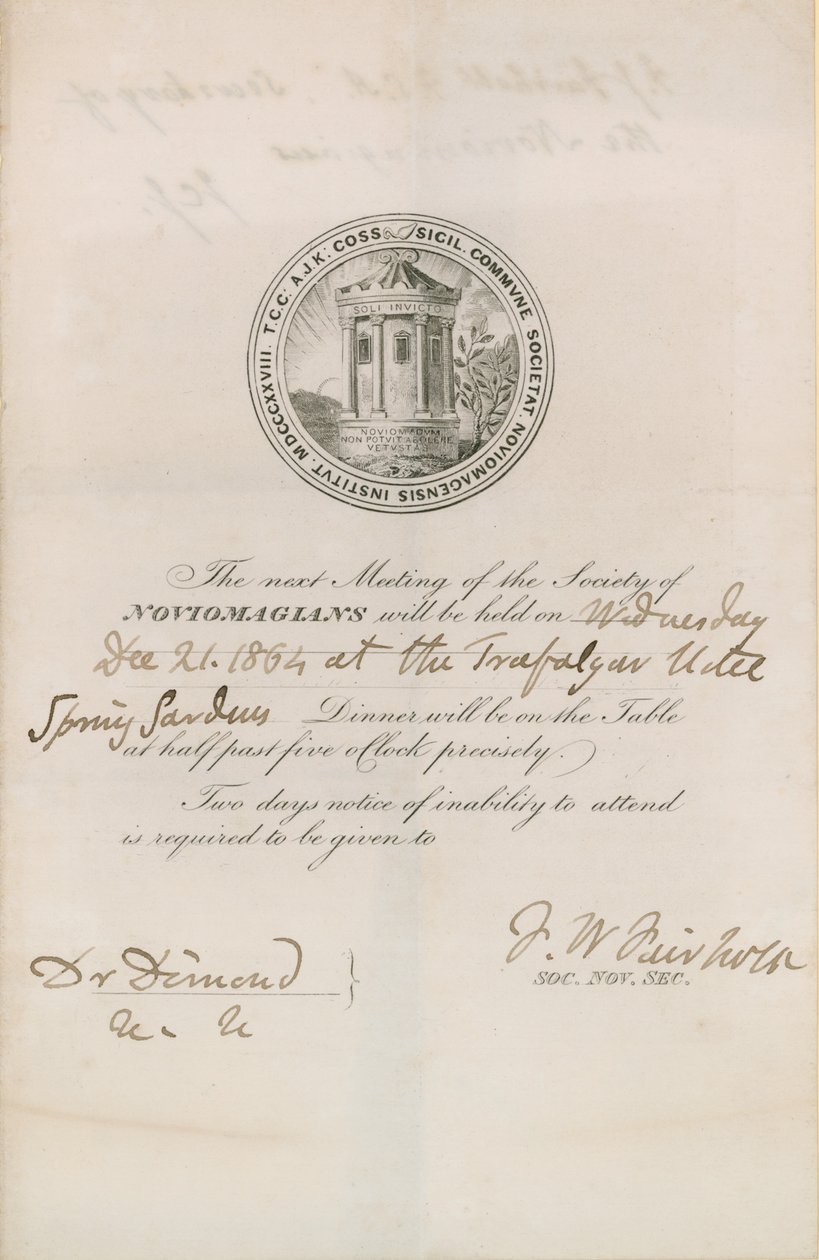 MDCCCXXVIII. T.C.C: A.J.K: COSS SIGIL. COMMVNE SOCIETAT. NOVIOMAGENSIS INSTITVT.
SOLI INVICTO
NOVIOMAGVM
NON POTVIT ABOLERE
VETVSTAS
The next Meeting of the Society of
NOVIOMAGIANS will be held on Wednesday
Dec 21. 1864 at the Trafalgar Hotel
Spring Gardens Dinner will be on the Table
at half past five o'Clock precisely.
Two days notice of inability to attend
is required to be given to
F. W Fairholt
SOC. NOV. SEC.
Dr Diamond